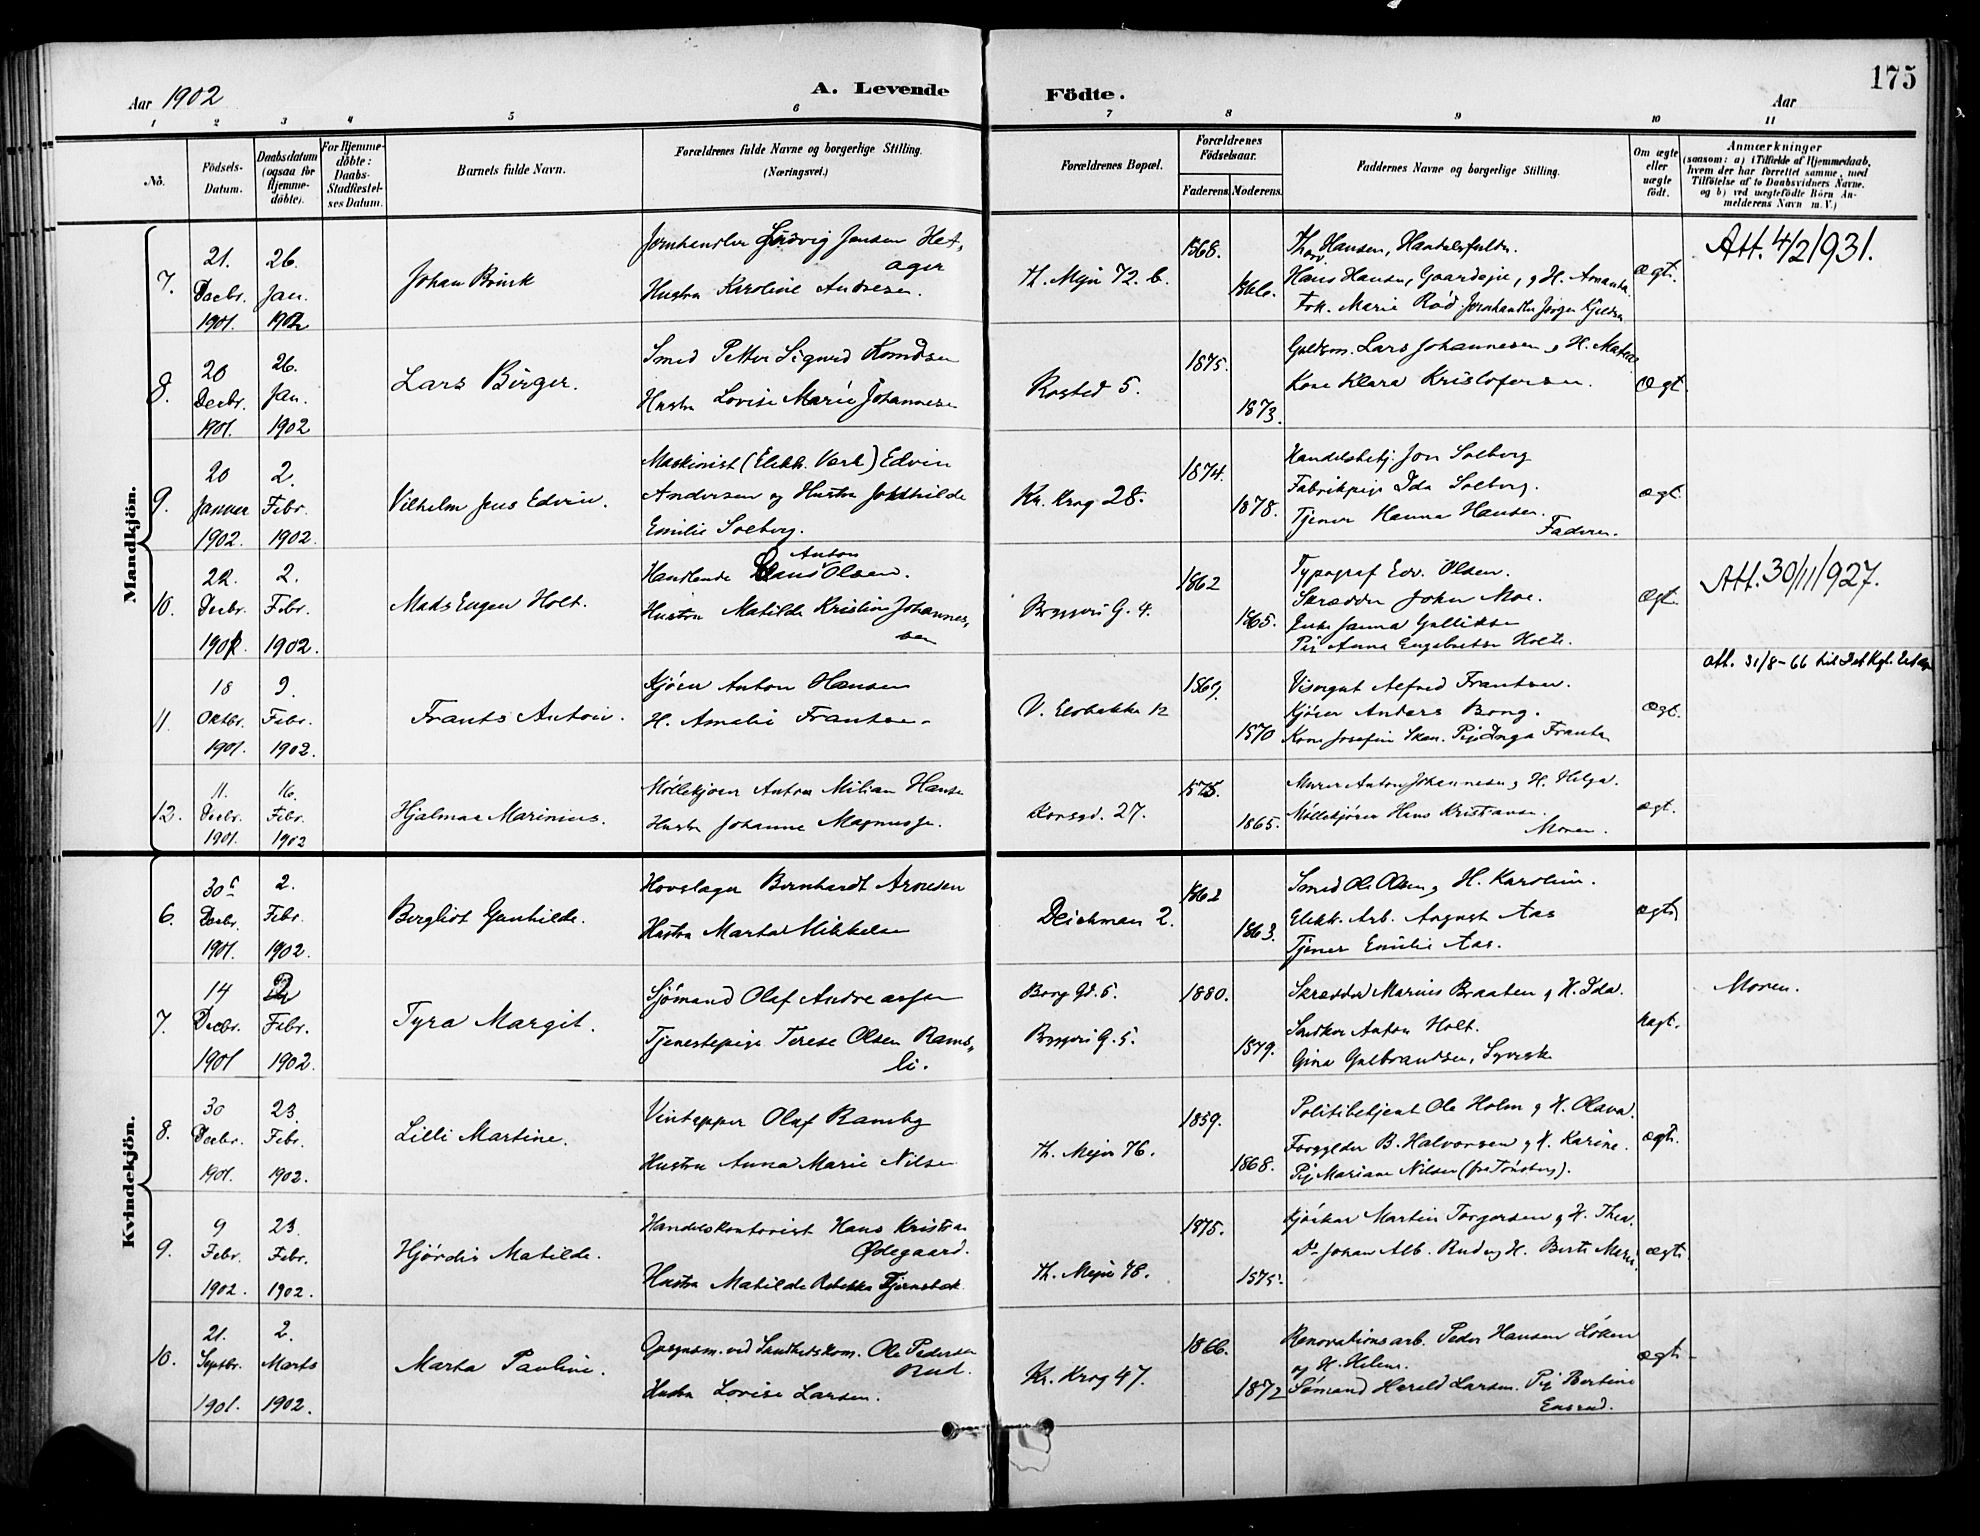 175
Aar 1902
A. Levende Födte.
Aar
1 2 3 4 5 6 7 8 9 10 11
No.
Födsels-Datum.
Daabsdatum (ogsaa for Hjemme-döbte).
For Hjemme-döbte: Daabs-Stadfæstel-ses Datum.
Barnets fulde Navn.
Forældrenes fulde Navne og borgerlige Stilling. (Næringsvei.)
Forældrenes Bopæl.
Forældrenes Födselsaar.
Faderens. Moderens.
Faddernes Navne og borgerlige Stilling.
Om ægte eller uægte födt.
Anmærkninger
(saasom: a) i Tilfælde af Hjemmedaab,
hvem der har forrettet samme, med
Tilföielse af to Daabsvidners Navne,
og b) ved uægtefödte Börn An-
melderens Navn m. V.)
Mandkjön.
7.
21. Decbr. 1901.
26. Jan. 1902
Johan Brink
Jernhandler Ludvig Jensen Het-
ager
Hustru Karoline Andresen.
Th. Mejer 72. b.
1868.
1866.
Th. Hansen, Handelsfuldm.
Hans Hansen, Gaardejer, og H. Amanda.
Frk. Marie Rød. Jernhandler Jørgen Kjeldsen
ægt.
Att. 4/2 1931.
8.
20 Decbr. 1901.
26. Jan. 1902
Lars Birger.
Smed Petter Sigurd Knudsen
Hustru Lovise Marie Johannesen
Rosted 5.
1875.
1873.
Guldsm. Lars Johannesen og H. Matea
Kone Klara Kristofersen.
ægt.
9.
20 Januar 1902.
2. Febr. 1902.
Vilhelm Jens Edvin.
Maskinist (Elektr. Verk) Edvin
Andersen og Hustru
Emilie Solberg.
Kr. Krog 28.
1874.
1878.
Handelsbetj. Jon Solberg
Fabrikpige Ida Solberg.
Tjener Hanna Hansen.
Faderen.
ægt.
10.
22. Decbr. 1901.
2. Febr. 1902.
Mads Eugen Holt.
Anton
Handlende Claus Olsen.
Hustru Matilde Kristine Johannes-
sen
G. 4.
1862
1865.
Typograf Edv. Olsen.
Skrædder John Moe.
Enke Janna Gulliksen
Pig. Anna Engebretsen Holte.
ægt.
Att. 30/11 1927.
11.
18 Oktbr. 1901.
9. Febr. 1902.
Frants Anton.
Kjører Anton Hansen
H. Amalie Frantsen
V. Elvebakke 12
1869.
1870
Visergut Alfred Frantsen.
Kjører Anders Bong.
Kone Josefine Skau. Pige Inga Frantsen
ægt.
att. 31/8-66 til Det Kgl.
12.
11. Decbr. 1901.
16. Febr. 1902
Hjalmar Marinius.
Møllekjører Anton Milian Hansen
Hustru Johanne Magnussen.
Korsgd. 27.
1875.
1865.
Murer Anton Johannesen og H. Helga.
Møllekjører Hans Kristiansen.
Moren.
ægt.
Kvindekjön.
6.
30 Decbr. 1901.
2. Febr. 1902.
Bergliot Gunhilde.
Hovslager Bernhardt Arnesen
Hustru Marta Mikkelsen
Deichman 2.
1862
1863.
Smed Ole Olsen og H. Karoline.
Elekt. Arb. August Aas
Tjener Emilie Aas.
ægte
7.
14 Decbr. 1901
2 Febr. 1902.
Tyra Margit.
Sjømand Olaf Andreassen
Tjenestepige Terese Olsen Rams-
li.
Borg Gd. 5.
G. 5.
1880.
1879.
Skrædder Marius Braaten og H. Ida.
Anton Holt.
Gina Gulbrandsen, Syersk
uægt.
Moren.
8.
30 Decbr. 1901.
23. Febr. 1902.
Lilli Martine.
Vintapper Olaf Ramby
Hustru Anna Marie Nilsen
Th. Mejer 76.
1859.
1868.
Politibetjent Ole Holm og H. Olava.
Forgylder B. Halvorsen og H. Karine.
Pige Mariane Nilsen (fra Tønsberg).
ægt.
9.
9 Febr. 1902.
23. Febr. 1902.
Hjørdis Matilde.
Handelskontorist Hans Kristian
Ødegaard.
Hustru Matilde Rebekka Tjernsbek
Th. Mejer 78.
1875.
1875.
Martin Torgersen og H. Thea.
Do Johan Alb. Rud og H. Berte Marie.
ægte
10.
21. Septbr. 1901.
2. Marts 1902.
Marta Pauline.
Opsynsm. ved Sundhedskom. Ole Pedersen
Rud.
Hustru Lovise Larsen.
Kr. Krog 47.
1866.
1872
Renovationsarb. Peder Hansen Løken
og H. Helene.
Sømand Harald Larsen. Pige Bertine
Ensrud.
ægte